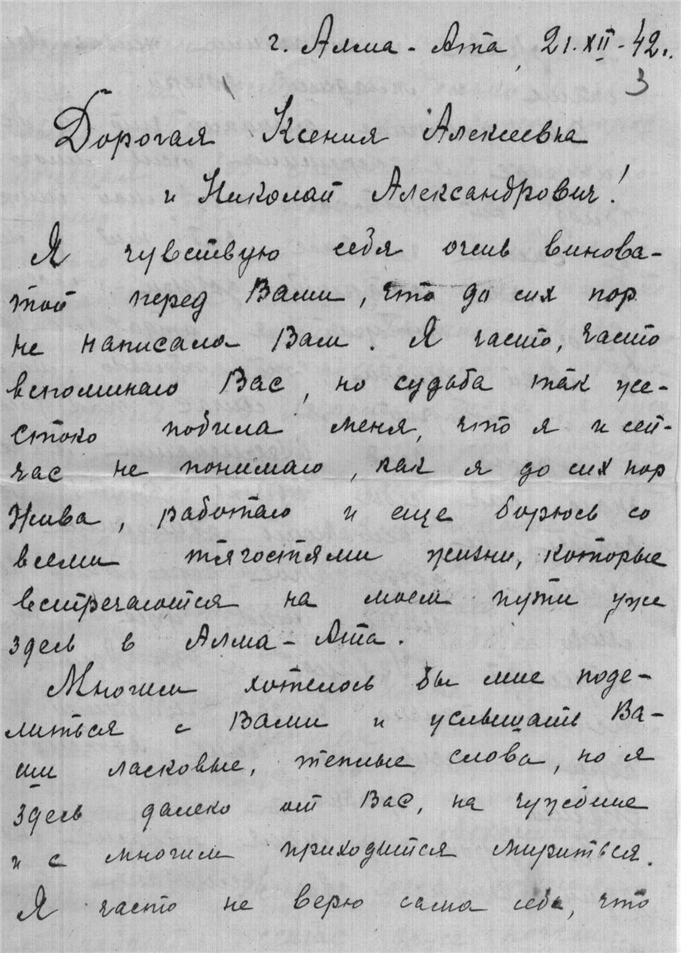 г. Алма-Ата, 21.XII-42г.
3
Дорогая Ксения Алексеевна
и Николай Александрович!
Я чувствую себя очень винова-
той перед Вами, что до сих пор
не написала Вам. Я часто, часто
вспоминаю Вас, но судьба так же-
стоко побила меня, что я и сей-
час не понимаю, как я до сих пор
жива, работаю и еще борюсь со
всеми тягостями жизни, которые
встречаются на моем пути уже
здесь в Алма-Ата.
Многим хотелось бы мне поде-
литься с Вами и услышать Ва-
ши ласковые, теплые слова, но я
здесь далеко от Вас, на чужбине
и с многим приходится мириться.
Я часто не верю сама себе, что